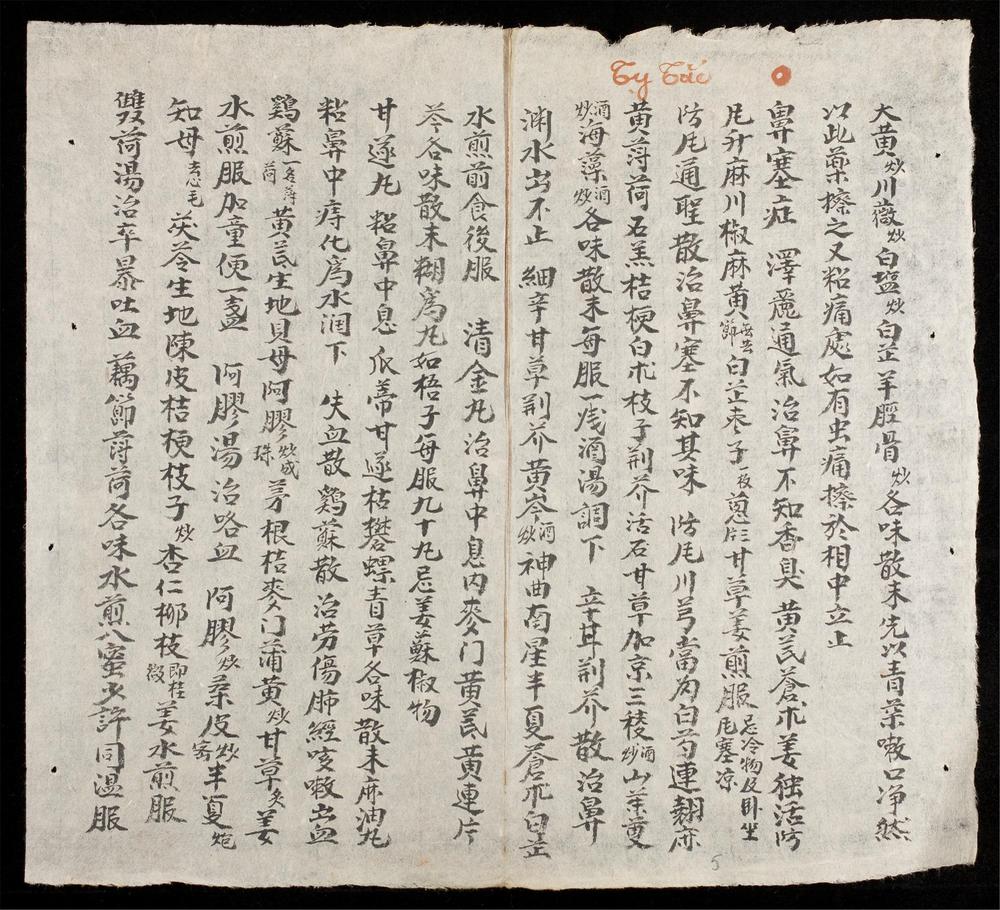 Tỵ Tắc
大黄炒川薇炒白塩炒白芷羊脛骨炒各味散末先以青茶嗽口净然
以此藥擦之又粘痛處如有虫痛擦於相中立止
鼻塞症 澤麗通氣治鼻不知香臭 黄芪蒼朮姜独活防
厇升麻川椒麻黄去節白芷枣子一枚葱𠂢甘草姜煎服忌冷物及卧坐厇塞凉
防厇通聖散治鼻塞不知其味 防厇川芎當为白芍連翹麻
黄薄荷石羔桔梗白朮枝子荆芥活石甘草加京三稜酒炒山茱萸
酒炒海藻酒炒各味散末每服一戋酒湯調下 辛甘荆芥散治鼻
渊水出不止 細辛甘草荆芥黄岑酒炒神曲南星半夏蒼朮白芷
水煎前食後服 清金丸治鼻中息内麥门黄芪黄連片
芩各味散末糊爲丸如梧子每服九十丸忌姜蘇椒物
甘遂丸 粘鼻中息 瓜蒂甘遂枯礬螺青草各味散末麻油丸
粘鼻中痔化爲水润下 失血散 鷄蘇散 治劳傷肺經咳嗽出血
鷄蘇一名薄荷黄芪生地貝母阿膠炒成珠茅根桔麥门蒲黄炒甘草炙姜
水煎服加童便一盞 阿膠湯治咯血 阿膠炒桒皮炒宻半夏炮
知母去心毛茯苓生地陳皮桔梗枝子炒杏仁柳枝即桂姜水煎服
雙荷湯治卒暴吐血 藕節薄荷各味水煎入蜜少許同温服
5